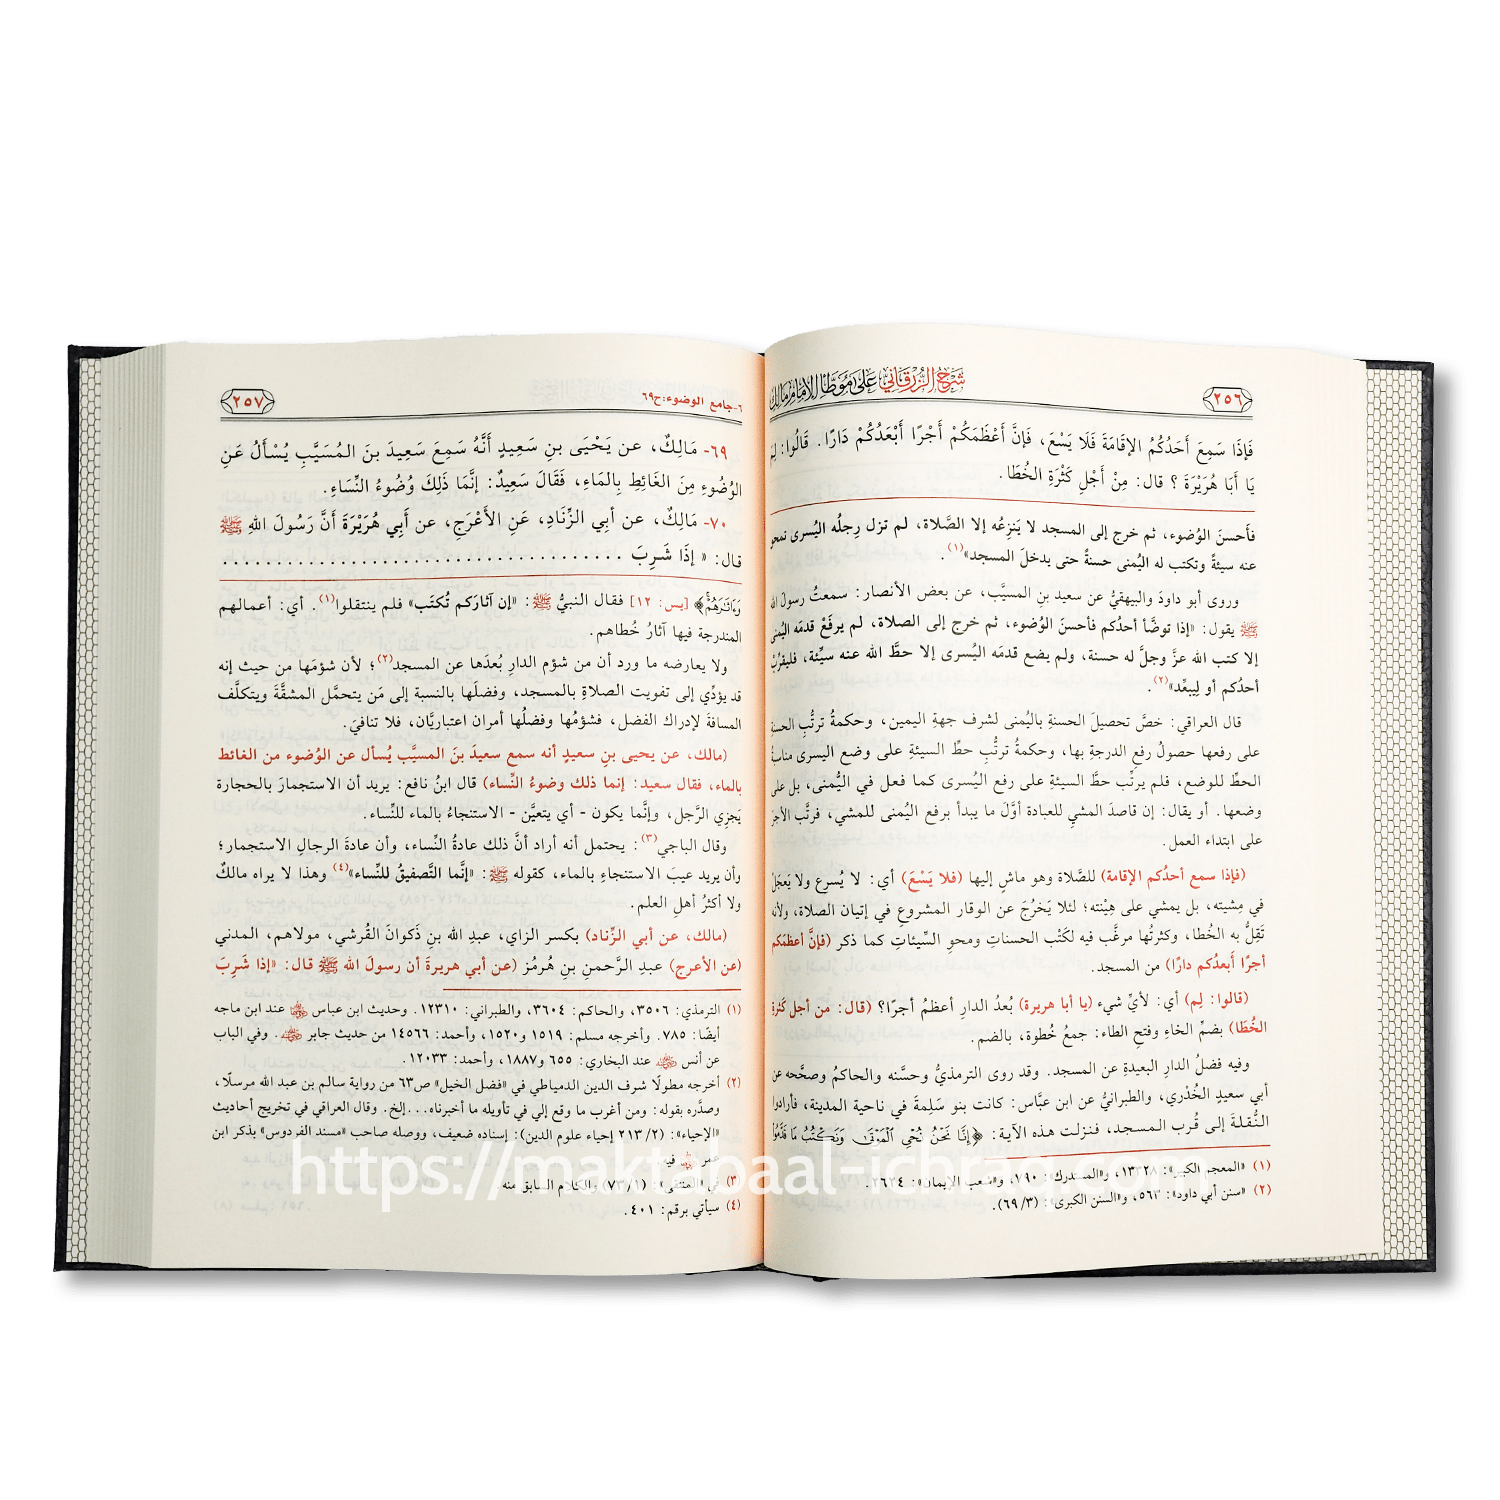 ٢٥٦
شرح الزرقاني على موطأ الإمام مالك
فَإِذَا سَمِعَ أَحَدُكُمُ الإِقَامَةَ فَلَا يَسْعَ، فَإِنَّ أَعْظَمَكُمْ أَجْرًا أَبْعَدُكُمْ دَارًا. قَالُوا: لِمَ
يَا أَبَا هُرَيْرَةَ؟ قال: مِنْ أَجْلِ كَثْرَةِ الخُطَا.
فأحسنَ الوُضوء، ثم خرج إلى المسجد لا يَنزِعُه إلا الصَّلاة، لم تزل رِجلُه اليُسرى تمحو
عنه سيئةً وتكتب له اليُمنى حسنةً حتى يدخلَ المسجد»(١).
وروى أبو داودَ والبيهقيُّ عن سعيد بنِ المسيَّب، عن بعض الأنصار: سمعتُ رسولَ الله
ﷺ يقول: «إذا توضَّأ أحدُكم فأحسنَ الوُضوء، ثم خرج إلى الصلاة، لم يرفَعْ قدمَه اليُمنى
إلا كتب الله عزَّ وجلَّ له حسنة، ولم يضع قدمَه اليُسرى إلا حطَّ الله عنه سيِّئة، فليقرِّبْ
أحدُكم أو لِيبعِّد»(٢).
قال العراقي: خصَّ تحصيلَ الحسنةِ باليُمنى لشرف جهةِ اليمين، وحكمةُ ترتُّبِ الحسنةِ
على رفعها حصولُ رفعِ الدرجةِ بها، وحكمةُ ترتُّبِ حطِّ السيئةِ على وضع اليسرى مناسبةُ
الحطِّ للوضع، فلم يرتِّب حطَّ السيئةِ على رفع اليُسرى كما فعل في اليُمنى، بل على
وضعها. أو يقال: إن قاصدَ المشيِ للعبادة أوَّلَ ما يبدأ برفع اليُمنى للمشي، فرتَّب الأجرَ
على ابتداء العمل.
(فإذا سمع أحدُكم الإقامة) للصَّلاة وهو ماشٍ إليها (فلا يَسْعَ) أي: لا يُسرع ولا يَعجَلْ
في مِشيته، بل يمشي على هِيْنته؛ لئلا يَخرُجَ عن الوقار المشروعِ في إتيان الصلاة، ولأنه
تَقِلُّ به الخُطا، وكثرتُها مرغَّب فيه لكَتْب الحسناتِ ومحوِ السِّيئاتِ كما ذكر (فإنَّ أعظمَكم
أجرًا أبعدُكم دارًا) من المسجد.
(قالوا: لِم) أي: لأيِّ شيء (يا أبا هريرة) بُعدُ الدار أعظمُ أجرًا؟ (قال: من أجل كَثرة
الخُطَا) بضمِّ الخاءِ وفتحِ الطاء: جمعُ خُطوة، بالضم.
وفيه فضلُ الدارِ البعيدةِ عن المسجد. وقد روى الترمذيُّ وحسَّنه والحاكمُ وصحَّحه عن
أبي سعيدٍ الخُدْري، والطبرانيُّ عن ابن عبَّاس: كانت بنو سَلِمةَ في ناحية المدينة، فأرادوا
النُّقلةَ إلى قُرب المسجد، فنزلت هذه الآية: ﴿إِنَّا نَحْنُ نُحْيِ الْمَوْتَى وَنَكْتُبُ مَا قَدَّمُوا
(١) «المعجم الكبير»: ١٣٣٢٨، و«المستدرك»: ٧٩٠، و«شعب الإيمان»: ٢٦٢٤.
(٢) «سنن أبي داود»: ٥٦٣، و«السنن الكبرى»: (٦٩/٣).
٦-جامع الوضوء:ح٦٩
٢٥٧
٦٩- مَالِكٌ، عن يَحْيَى بنِ سَعِيدٍ أَنَّهُ سَمِعَ سَعِيدَ بنَ المُسَيَّبِ يُسْأَلُ عَنِ
الوُضُوءِ مِنَ الغَائِطِ بِالمَاءِ، فَقَالَ سَعِيدٌ: إنَّمَا ذَلِكَ وُضُوءُ النِّسَاءِ.
٧٠- مَالِكٌ، عن أَبِي الزِّنَادِ، عَنِ الأَعْرَجِ، عن أَبِي هُرَيْرَةَ أَنَّ رَسُولَ اللهِ ﷺ
قال: « إذَا شَرِبَ ................................
وَءَاثَٰرَهُمْ﴾ [يس: ١٢] فقال النبيُّ ﷺ: «إن آثارَكم تُكتَب» فلم ينتقلوا(١). أي: أعمالهم
المندرجة فيها آثارُ خُطاهم.
ولا يعارضه ما ورد أن من شؤم الدارِ بُعدَها عن المسجد(٢)؛ لأن شؤمَها من حيث إنه
قد يؤدِّي إلى تفويت الصلاةِ بالمسجد، وفضلَها بالنسبة إلى مَن يتحمَّل المشقَّةَ ويتكلَّف
المسافةَ لإدراك الفضل، فشؤمُها وفضلُها أمران اعتباريَّان، فلا تنافيَ.
(مالك، عن يحيى بنِ سعيدٍ أنه سمع سعيدَ بنَ المسيَّب يُسأل عن الوُضوء من الغائط
بالماء، فقال سعيد: إنما ذلك وضوءُ النِّساء) قال ابنُ نافع: يريد أن الاستجمارَ بالحجارة
يَجزِي الرَّجل، وإنَّما يكون - أي يتعيَّن - الاستنجاءُ بالماء للنِّساء.
وقال الباجي(٣): يحتمل أنه أراد أنَّ ذلك عادةُ النِّساء، وأن عادةَ الرجالِ الاستجمار؛
وأن يريد عيبَ الاستنجاءِ بالماء، كقوله ﷺ: «إنَّما التَّصفيقُ للنِّساء»(٤) وهذا لا يراه مالكٌ
ولا أكثرُ أهلِ العلم.
(مالك، عن أبي الزِّناد) بكسر الزاي، عبدِ الله بنِ ذَكوانَ القُرشي، مولاهم، المدني
(عن الأعرج) عبدِ الرَّحمنِ بنِ هُرمُز (عن أبي هريرةَ أن رسولَ الله ﷺ قال: «إذا شَرِبَ
(١) الترمذي: ٣٥٠٦، والحاكم: ٣٦٠٤، والطبراني: ١٢٣١٠. وحديث ابن عباس ﵄ عند ابن ماجه
أيضًا: ٧٨٥. وأخرجه مسلم: ١٥١٩ و١٥٢٠، وأحمد: ١٤٥٦٦ من حديث جابر ﵁. وفي الباب
عن أنس ﵁ عند البخاري: ٦٥٥ و١٨٨٧، وأحمد: ١٢٠٣٣.
(٢) أخرجه مطولًا شرف الدين الدمياطي في «فضل الخيل» ص٦٣ من رواية سالم بن عبد الله مرسلًا،
وصدَّره بقوله: ومن أغرب ما وقع إلي في تأويله ما أخبرناه...إلخ. وقال العراقي في تخريج أحاديث
«الإحياء»: (٢/ ٢١٣ إحياء علوم الدين): إسناده ضعيف، ووصله صاحب «مسند الفردوس» بذكر ابن
عمر ﵄ فيه.
(٣) في «المنتقى»: (٧٣/١) والكلام السابق منه.
(٤) سيأتي برقم: ٤٠١.